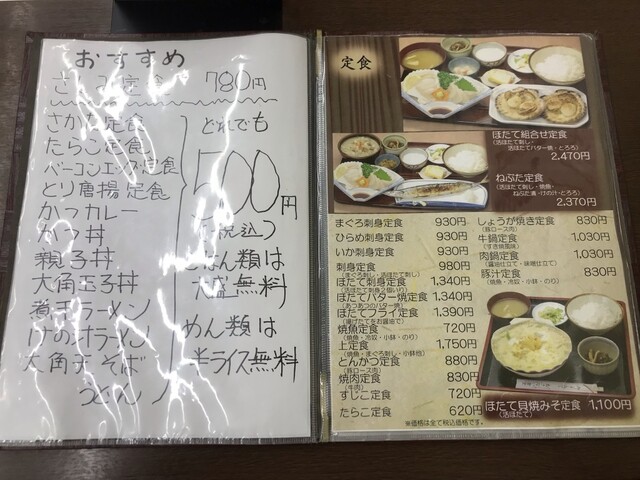 おすすめ
さしみ定食 780円
さかな定食
たらこ定食
ベーコンエッグ定食
とり唐揚定食
かつカレー
かつ丼
親子丼
大角玉子丼
煮干ラーメン
けの汁ラーメン
大角天そば
うどん
どれでも
500円
(税込)
ごはん類は
大盛無料
めん類は
半ライス無料
定食
ほたて組合せ定食
(活ほたて刺し・
活ほたてバター焼・とろろ)
2,470円
ねぶた定食
(活ほたて刺し・焼魚・
ねぶた漬・けの汁・とろろ)
2,370円
まぐろ刺身定食 930円
ひらめ刺身定食 930円
いか刺身定食 930円
刺身定食 980円
(まぐろ刺し・活ほたて刺し)
ほたて刺身定食 1,340円
(活ほたて刺身2個いり)
ほたてバター焼定食 1,340円
(あつあつのバター焼)
ほたてフライ定食 1,390円
(揚げたてをお醤油で)
焼魚定食 720円
(焼魚・冷奴・小鉢・のり)
上定食 1,750円
(焼魚・まぐろ刺し・小鉢他)
とんかつ定食 880円
(豚ロース肉)
焼肉定食 830円
(牛肉)
すじこ定食 720円
たらこ定食 620円
しょうが焼き定食 830円
(豚ロース肉)
牛鍋定食 1,030円
(すき焼風味)
肉鍋定食 1,030円
(醤油仕立て・味噌仕立て)
豚汁定食 830円
(焼魚・冷奴・小鉢・のり)
ほたて貝焼みそ定食 1,100円
(活ほたて)
※価格は全て税込価格です。